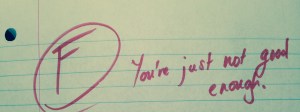 F
You're just not good
enough.